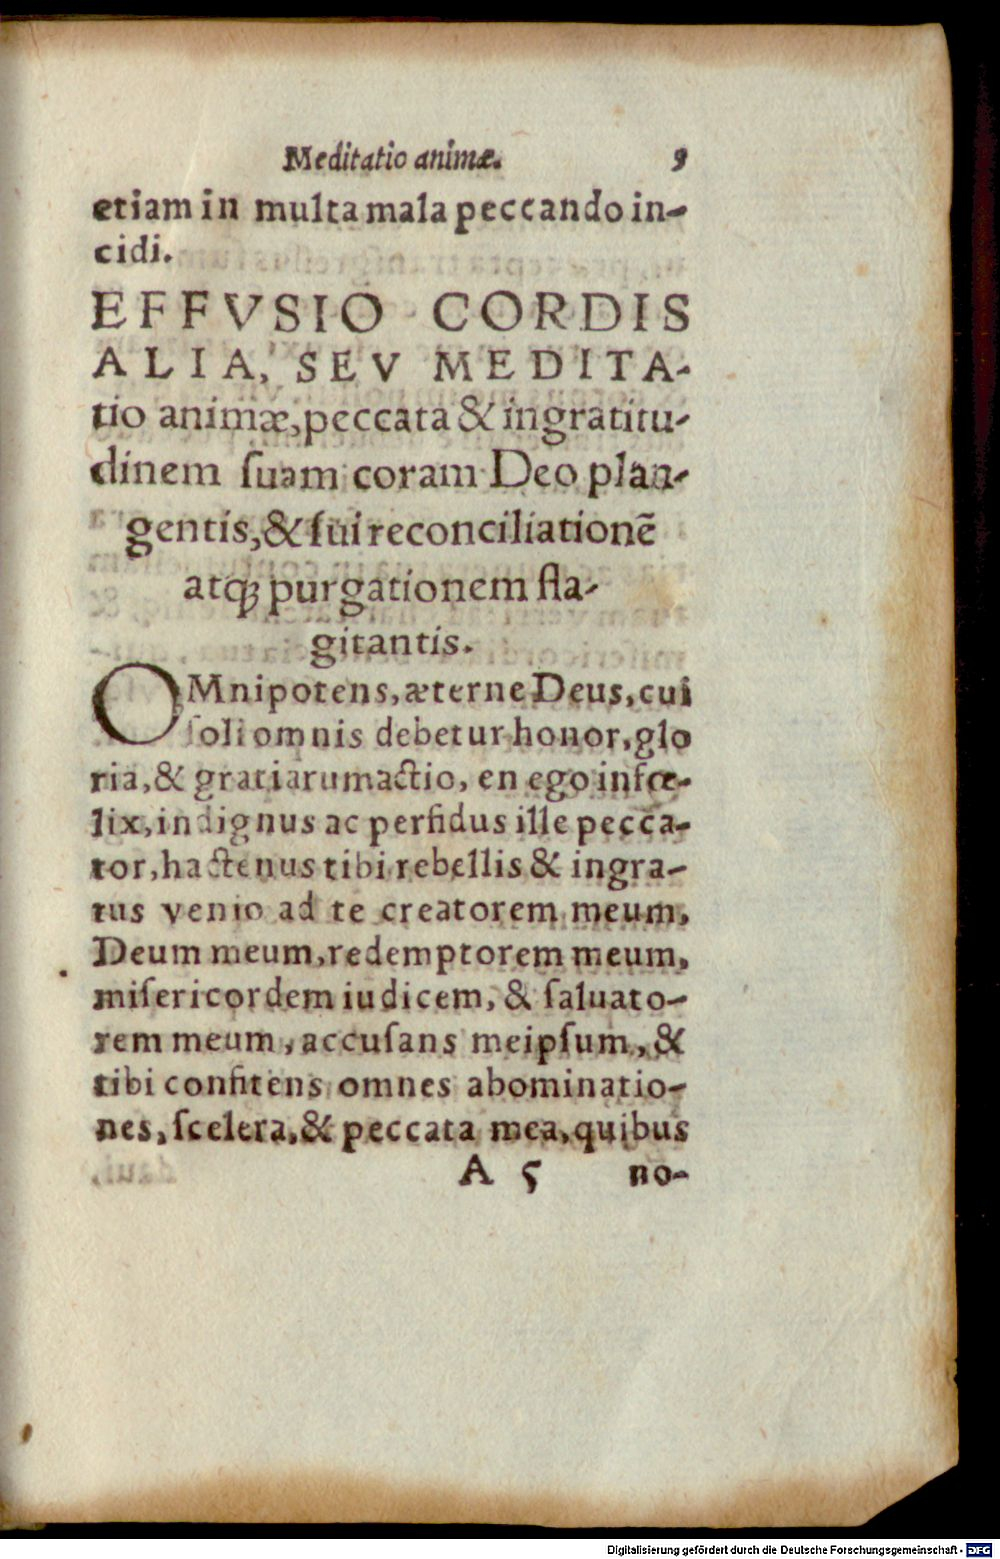 Meditatio animæ. 9
etiam in multa mala peccando in-
cidi.
EFFVSIO CORDIS
ALIA, SEV MEDITA-
tio animæ, peccata & ingratitu-
dinem ſuam coram Deo plan-
gentis, & ſui reconciliationē
atq; purgationem fla-
gitantis.
OMnipotens, æterne Deus, cui
ſoli omnis debetur honor, glo
ria, & gratiarumactio, en ego infœ-
lix, indignus ac perfidus ille pecca-
tor, hactenus tibi rebellis & ingra-
tus venio ad te creatorem meum,
Deum meum, redemptorem meum,
miſericordem iudicem, & ſaluato-
rem meum, accuſans meipſum, &
tibi confitens omnes abominatio-
nes, ſcelera, & peccata mea, quibus
A 5 no-
Digitalisierung gefördert durch die Deutsche Forschungsgemeinschaft - DFG